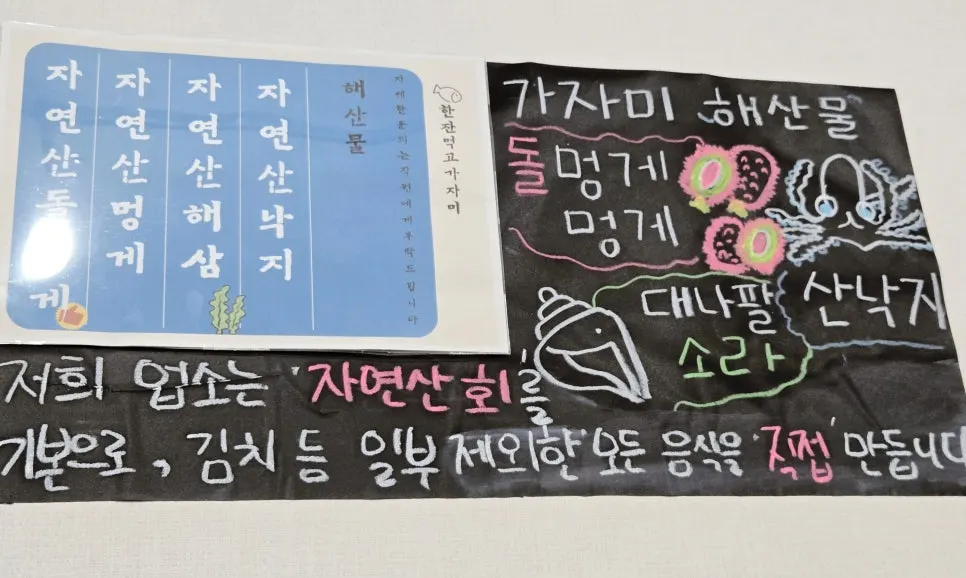 한잔먹고가자미
자세한문의는직원에게부탁드립니다
해산물
자연산낙지
자연산해삼
자연산멍게
자연산돌멍게
가자미 해산물
돌멍게
멍게
대나팔
소라
산낙지
저희 업소는 '자연산회'를
기본으로, 김치 등 일부 제외한 모든 음식을 '직접' 만듭니다